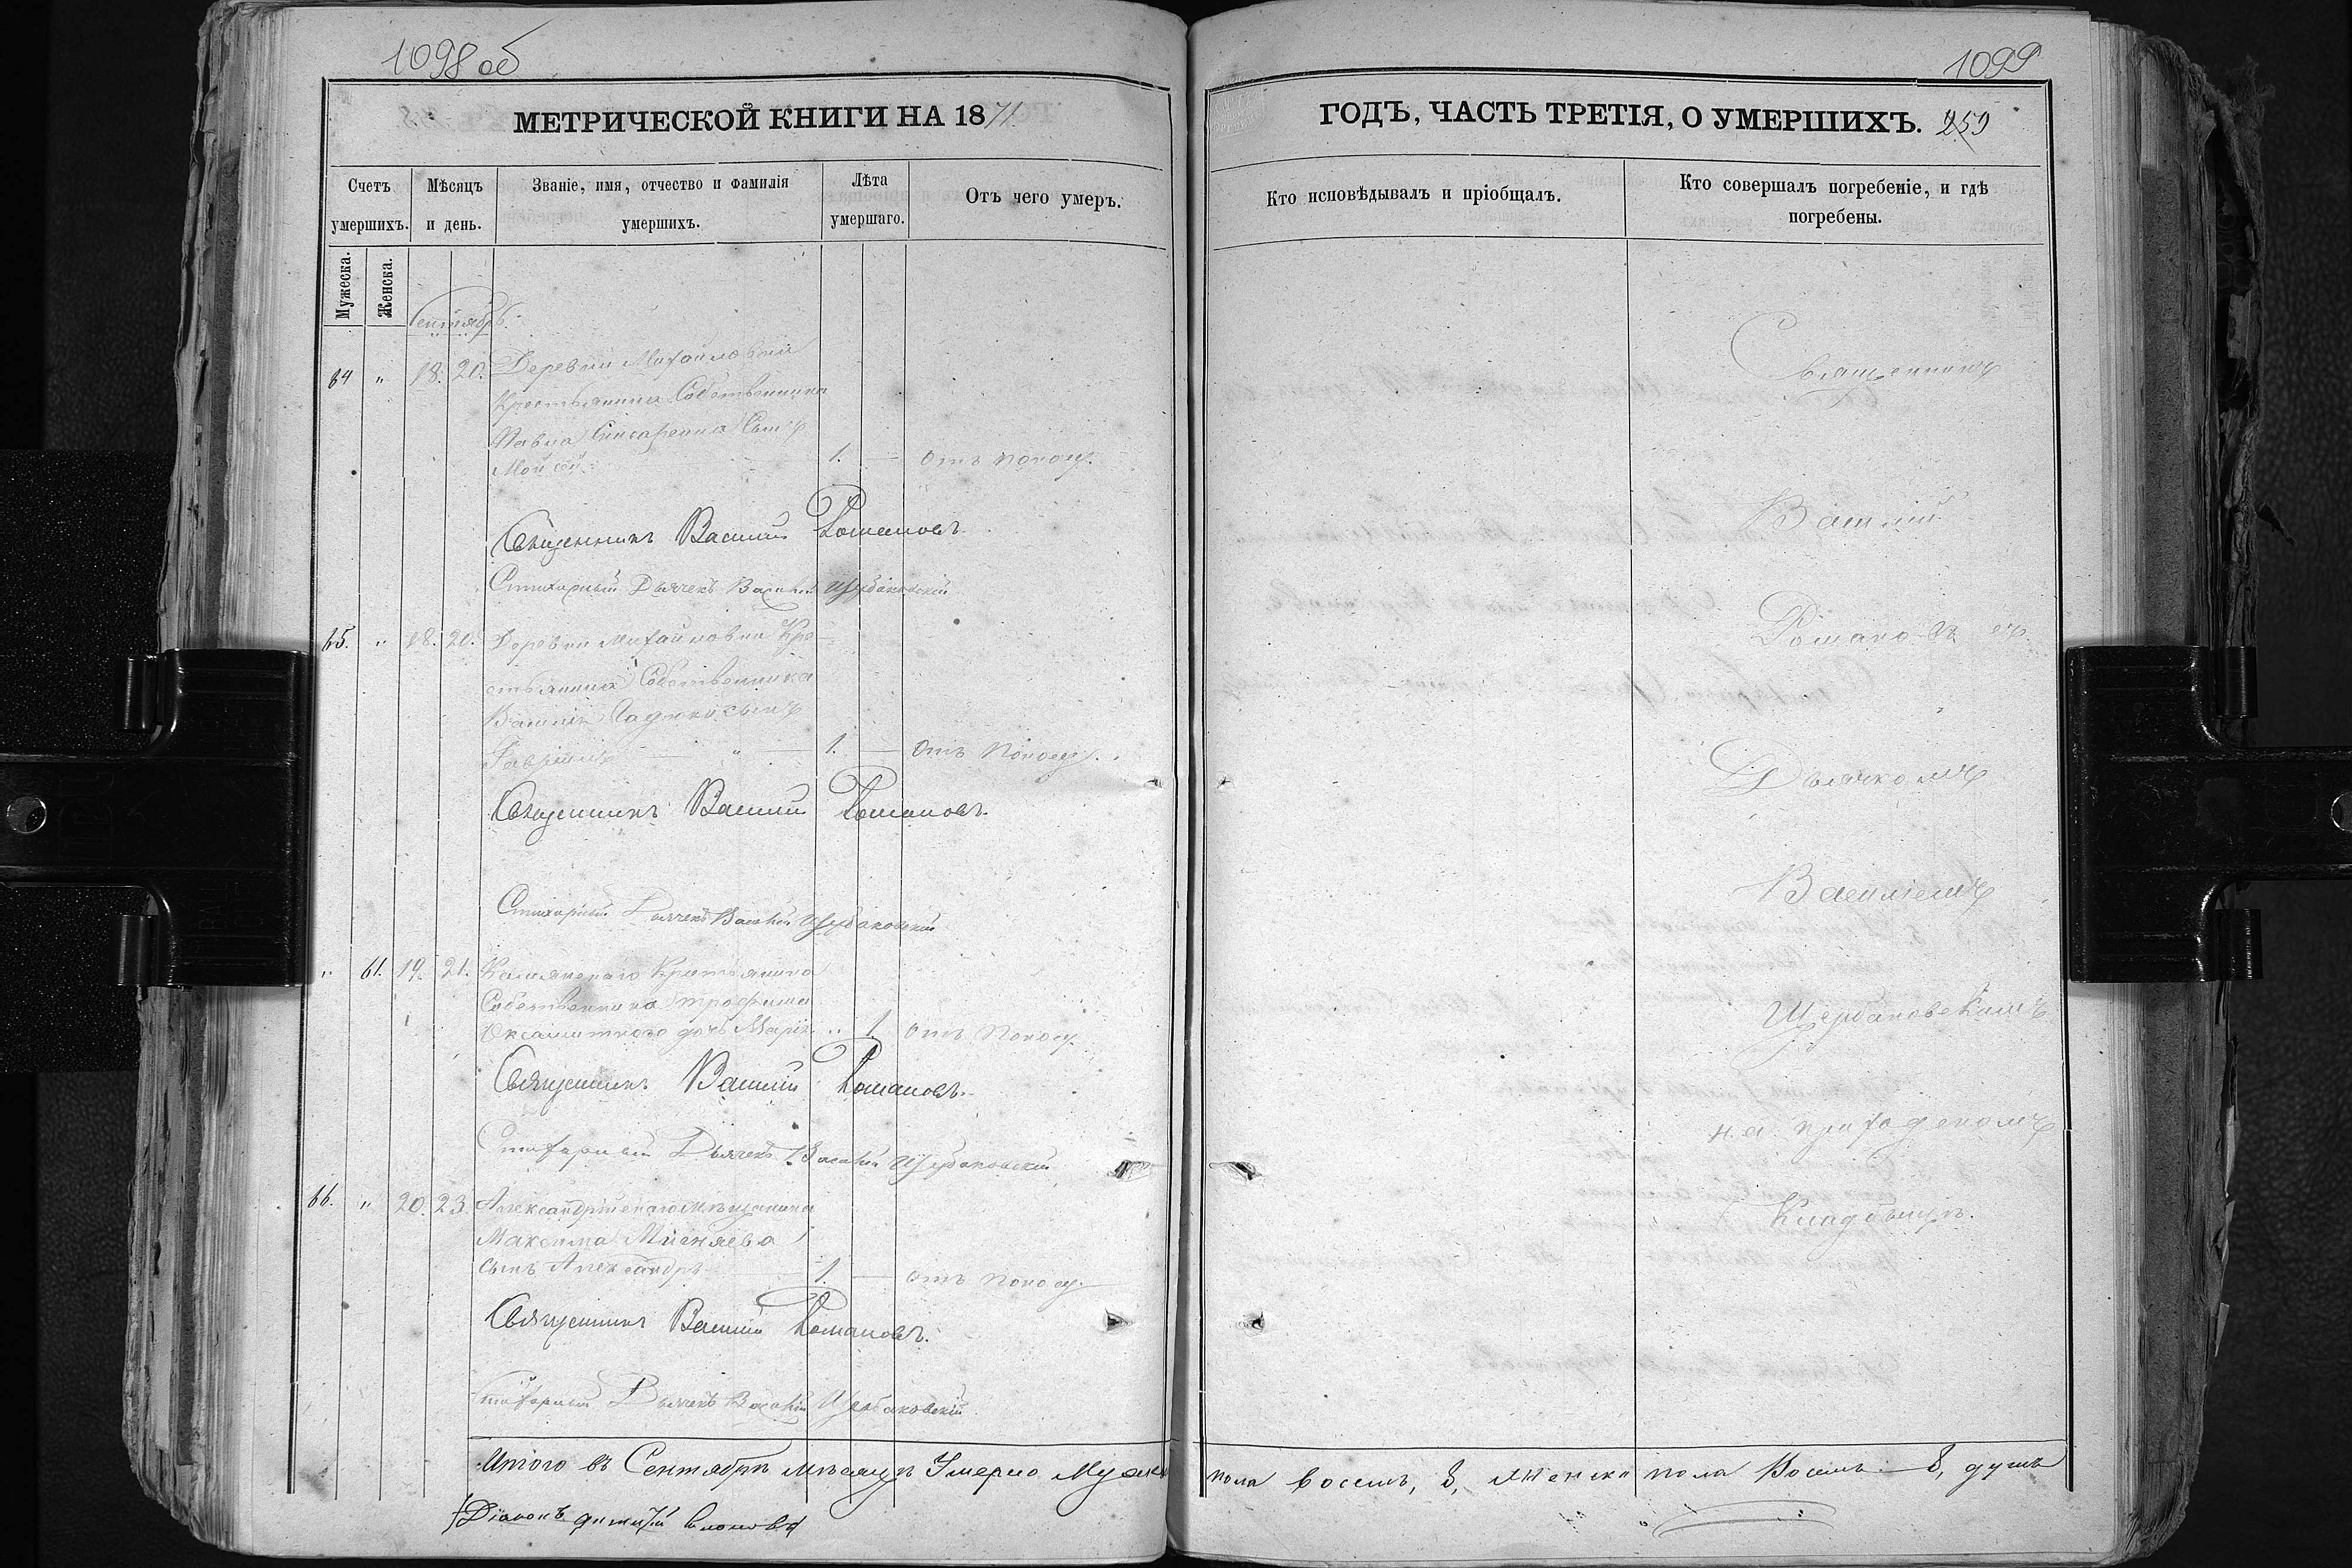 1098 об
МЕТРИЧЕСКОЙ КНИГИ НА 1871
Счетъ умершихъ.
Мѣсяцъ и день.
Званіе, имя, отчество и фамилія умершихъ.
Лѣта умершаго.
Отъ чего умеръ.
Мужеска.
Женска.
Сентябрь.
64 " 18. 20. Деревни Михайловки
крестьянина Собственника
Павла Слисаренка Сынъ
Моисей 1. — Отъ поносу.
Священникъ Василій Романовъ
Стихарный Дьячекъ Василій Щербаковскій
65. " 18. 20. Деревни Михайловки Кре-
стьянина Собственника
Василія сынъ
Гавріилъ — " — 1. — Отъ поносу.
Священникъ Василій Романовъ.
Стихарный Дьячекъ Василій Щербаковскій
" 61. 19. 21. Крестьянина
Собственника Трофима
Оксамитного дочь Марія " 1. отъ поносу
Священникъ Василій Романовъ.
Стихарный Дьячекъ Василій Щербаковскій
66. " 20. 23. Александрійскаго мѣщанина
Максима
сынъ Александръ — 1. — отъ поносу
Священникъ Василій Романовъ.
Стихарный Дьячекъ Василій Щербаковскій
Итого въ Сентябрѣ мѣсяцѣ Умерло Мужск
Діаконъ
1099
ГОДЪ, ЧАСТЬ ТРЕТІЯ, О УМЕРШИХЪ. 259
Кто исповѣдывалъ и пріобщалъ.
Кто совершалъ погребеніе, и гдѣ погребены.
Священникъ
Василій
Романовъ съ
Дьячкомъ
Василіемъ
Щербаковскимъ
на приходскомъ
Кладбищѣ.
пола восемь, 8, женска пола Восемь — 8, душъ